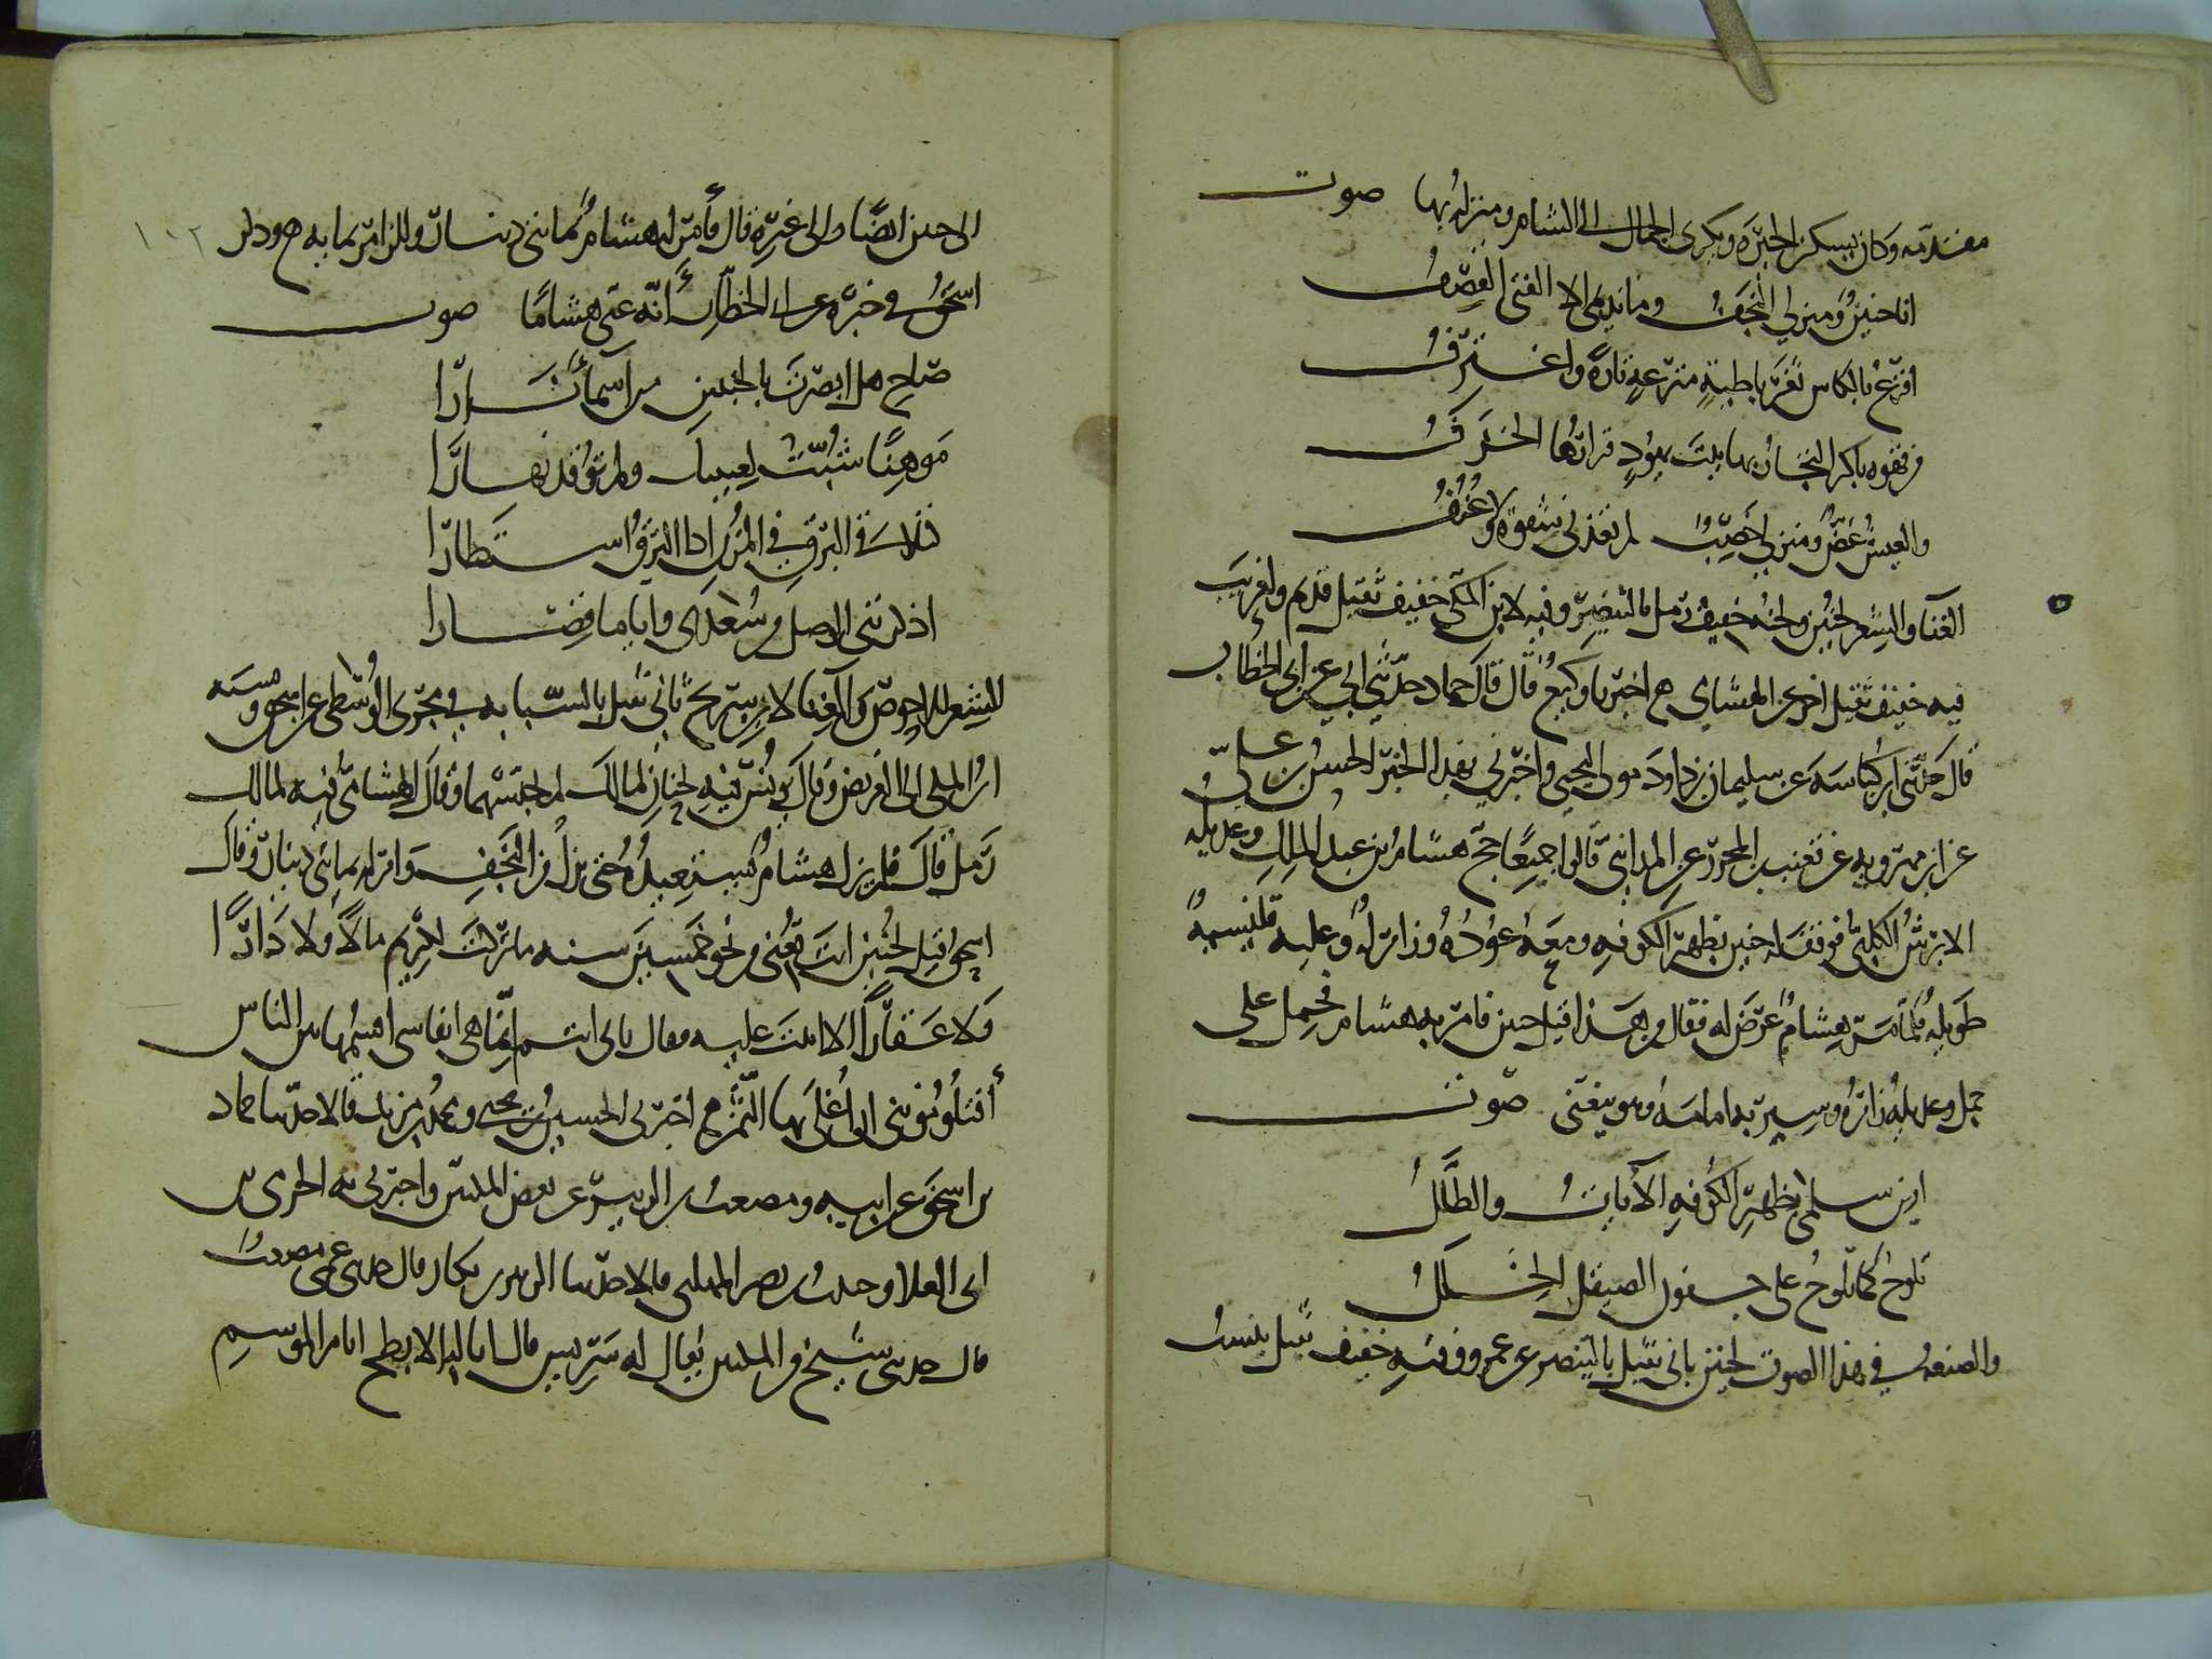 مقدمه وكان يسكن الحيرة ويكرى الجمال الى الشام ومنزله بها صوت
انا حنين ومنزلي النجف وما نديمي الا الفتى القصف
اقرع بالكاس ثغر باطية مترعة تارة واغترف
من قهوة باكر التجار بها بيت يهود قرارها الخزف
والعيش غض ومنزلي خصب لم تغذني شقوة ولا عنف
الغنآ والشعر لحنين ولحنه خفيف رمل بالبنصر وفيه لابن المكي خفيف ثقيل قديم ولغريب
فيه خفيف ثقيل اخر عن الهشامي ح اخبرنا وكيع قال قال حماد حدثني ابي عن ابي الخطاب
قال حدثني ابن كناسة عن سليمان بن داود مولى ليحيى واخبرني بهذا الخبر الحسن بن علي
عن ابن مهرويه عن قعنب بن المحرز عن المدائني قالوا جميعا حج هشام بن عبد الملك وعديله
الابرش الكلبي فوقف له حنين بظهر الكوفة ومعه عوده وزامر له وعليه قلنسية
طويلة فلما مر به هشام عرض له فقال من هذا قيل حنين فامر به هشام فحمل على
جمل وعديله زامره وسير به امامه وهو يتغنى صوت
امن سلمى بظهر الكوفة الآيات والطلل
تلوح كما تلوح على جفون الصيقل الخلل
والصنعة في هذا الصوت لحنين ثاني ثقيل بالبنصر عن عمرو وفيه خفيف ثقيل ينسب
الى حنين ايضا والى غيره قال فأمر له هشام بمائتي دينار وللزامر بمائة ح وذكر
اسحق في خبره عن ابي الخطاب أنه غنى هشاما صوت
صاح هل ابصرت بالخبتين من اسماء نارا
موهنا شبت لعينيك ولم توقد نهارا
كتلالي البرق في المزن اذا البرق استطارا
اذكرتني الوصل من سعدى واياما قصارا
الشعر للاحوص والغنا لابن سريج ثاني ثقيل بالسبابة في مجرى الوسطى عن اسحق ونسبه
ابن المكي الى الغريض وقال يونس فيه لحنان لمالك لم يجنسهما وقال الهشامي فيه لمالك
رمل قال فلم يزل هشام يستعيده حتى نزل من النجف وامر له بمائتي دينار وقال
اسحق قيل لحنين انت تغني من نحو خمسين سنة ما تركت لكريم مالا ولا دارا
ولا عقارا الا اتيت عليه فقال بابي انتم انما هي انفاسي اقسمها بين الناس
أفتلوموننى ان أغلي بها الثمن ح اخبرني الحسين بن يحيى ومحمد بن مزيد قالا حدثنا حماد
بن اسحق عن ابيه ومصعب بن الزبير عن بعض المكيين واخبرني به الحرمي بن
ابى العلا وحبيب بن نصر المهلبى قالا حدثنا الزبير بن بكار قال حدثني عمى مصعب
قال حدثني شيخ من المكيين يقال له شريس قال انا لبالابطح ايام الموسم
١٠٢